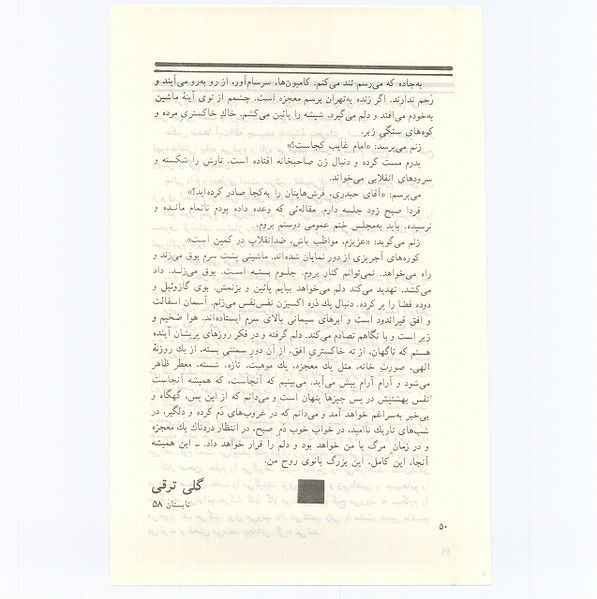 به‌جاده که می‌رسم تند می‌کنم. کامیون‌ها، سرسام‌آور، از رو به‌رو می‌آیند و
رحم ندارند. اگر زنده به‌تهران برسم معجزه است. چشمم از توی آینهٔ ماشین
به‌خودم می‌افتد و دلم می‌گیرد. شیشه را پائین می‌کشم. خاكِ خاکستریِ مرده و
کوه‌های سنگیِ زبر.
زنم می‌پرسد: «امام غایب کجاست؟»
پدرم مست کرده و دنبال زن صاحبخانه افتاده است. تارش را شکسته و
سرودهای انقلابی می‌خواند.
می‌پرسم: «آقای حیدری، فرش‌هایتان را به‌کجا صادر کرده‌اید؟»
فردا صبح زود جلسه دارم. مقاله‌ئی که وعده داده بودم ناتمام مانده و
نرسیده. باید به‌مجلس ختم عمومی دوستم بروم.
زنم می‌گوید: «عزیزم، مواظب باش، ضدانقلاب در کمین است».
کوره‌های آجرپزی از دور نمایان شده‌اند. ماشینی پشت سرم بوق می‌زند و
راه می‌خواهد. نمی‌توانم کنار بروم. جلوم بسته است. بوق می‌زند. داد
می‌کشد. تهدید می‌کند. دلم می‌خواهد بیایم پائین و بزنمش. بوی گازوئیل و
دوده فضا را پر کرده. دنبال یك ذره اکسیژن نفس‌نفس می‌زنم. آسمان اسفالت
و افق قیراندود است و ابرهای سیمانی بالای سرم ایستاده‌اند. هوا ضخیم و
زبر است و با نگاهم تصادم می‌کند. دلم گرفته و در فکر روزهای پریشان آینده
هستم که ناگهان، از ته خاکستریِ افق، از آن دور سمنتی بسته، از یك روزنهٔ
الهی، صورتِ خانه، مثل یك معجزه، یك موهبت، تازه، شسته، معطر ظاهر
می‌شود و آرام آرام پیش می‌آید. می‌بینم که آنجاست، که همیشه آنجاست
نفس بهشتیش در پس چیزها پنهان است و می‌دانم که از این پس، گهگاه و
بی‌خبر به‌سراغم خواهد آمد و می‌دانم که در غروب‌های دَم کرده و دلگیر، در
شب‌های تاریك ناامید، در خواب خوب دمِ صبح، در انتظار دردناك یك معجزه
و در زمانِ مرگ با من خواهد بود و دلم را قرار خواهد داد. ــ این همیشه
آنجا، این کامل، این بزرگ بانوی روح من.
گلی ترقی
تابستان ۵۸
۵۰